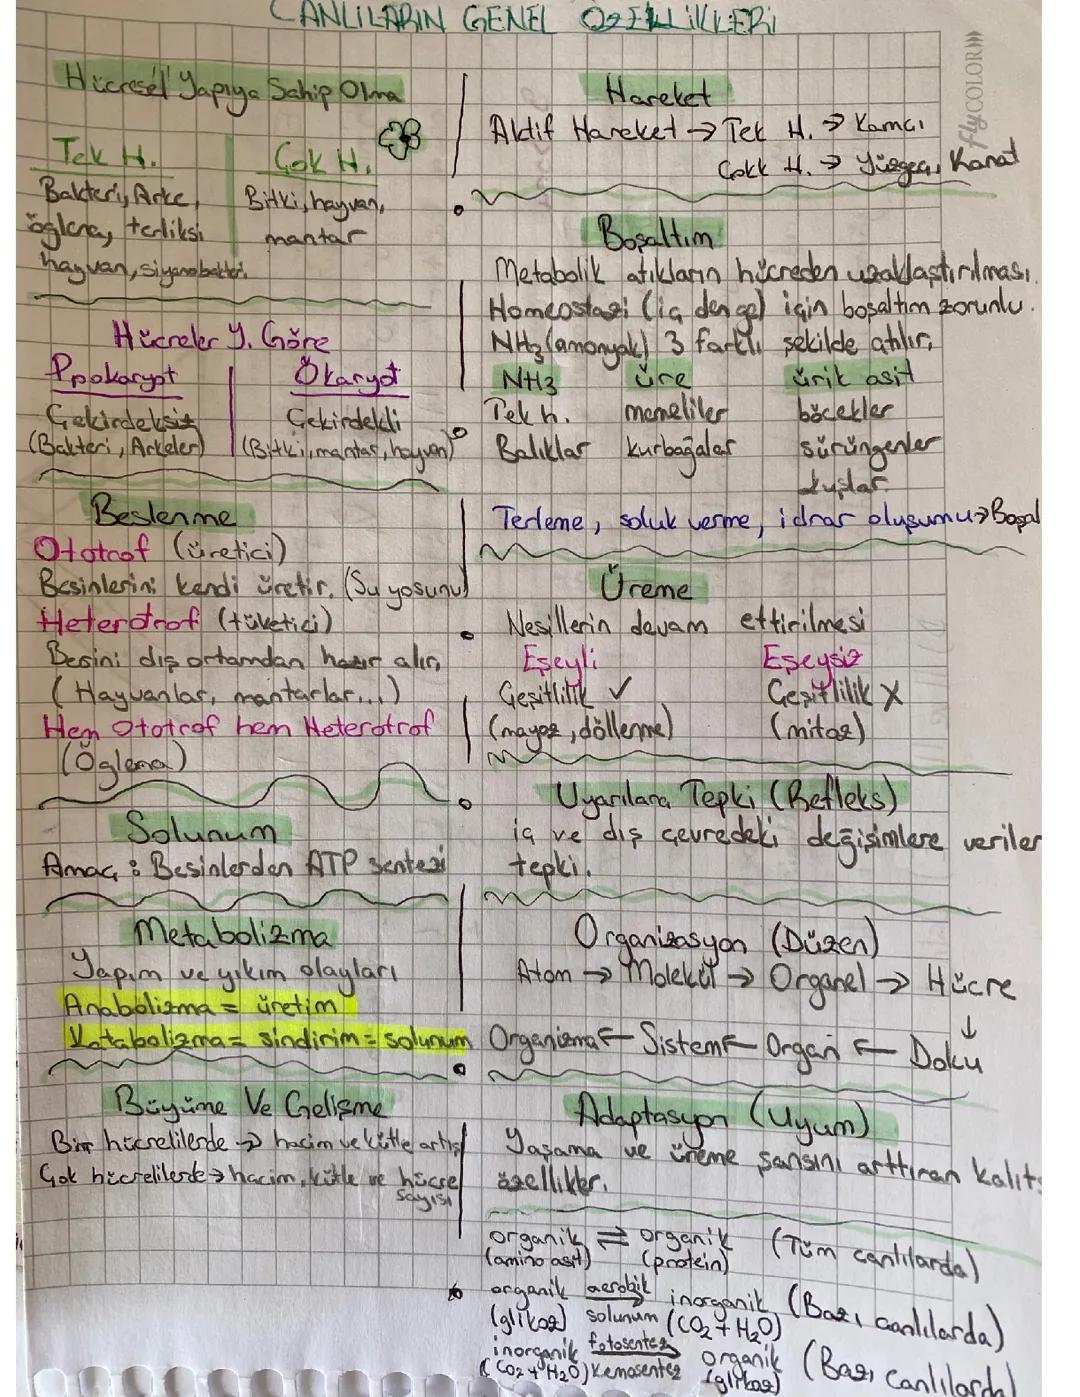 CANLILARIN GENEL ÖZELLİKLERİ
flyCOLOR
Hücresel Yapıya Sahip Olma
Tek H.
Çok H.
Bakteri, Arke,
öglena, terliksi
hayvan, siyanobakteri.
Bitki, hayvan,
mantar
Hücreler Y. Göre
Prokaryot
Ökaryot
Çekirdeksiz
(Bakteri, Arkeler)
Çekirdekli
(Bitki, mantar, hayvan)
Beslenme
Ototrof (üretici)
Besinlerini kendi üretir. (Su yosunu)
Heterotrof (tüketici)
Besini dış ortamdan hazır alır,
(Hayvanlar, mantarlar...)
Hem Ototrof hem Heterotrof
(Öglena)
Solunum
Amaç : Besinlerden ATP sentezi
Metabolizma
Yapım ve yıkım olayları
Anabolizma = üretim
Katabolizma = sindirim = solunum
Büyüme Ve Gelişme
Bir hücrelilerde → hacim ve kütle artışı
Çok hücrelilerde → hacim, kütle ve hücre
sayısı
Hareket
Aktif Hareket → Tek H. → Kamçı
Çokk H. → Yüzgeç, Kanat
Boşaltım
Metabolik atıkların hücreden uzaklaştırılması.
Homeostazi (iç denge) için boşaltım zorunlu.
NH3 (amonyak) 3 farklı şekilde atılır,
NH3 üre ürik asit
Tek h. memeliler böcekler
Balıklar kurbağalar sürüngenler
kuşlar
Terleme, soluk verme, idrar oluşumu → Boşal
Üreme
Nesillerin devam ettirilmesi
Eşeyli Eşeysiz
Çeşitlilik ✓ Çeşitlilik X
(mayoz, döllenme) (mitoz)
Uyarılara Tepki (Refleks)
iç ve dış çevredeki değişimlere verilen
tepki.
Organizasyon (Düzen)
Atom → Molekül → Organel → Hücre
↓
Organizma ← Sistem ← Organ ← Doku
Adaptasyon (Uyum)
Yaşama ve üreme şansını arttıran kalıts
özellikler.
organik ⇌ organik (Tüm canlılarda)
(amino asit) (protein)
organik aerobik inorganik (Bazı canlılarda)
(glikoz) solunum (CO2 + H2O)
inorganik fotosentez organik (Bazı canlılarda)
(CO2 + H2O) Kemosentez (glikoz)